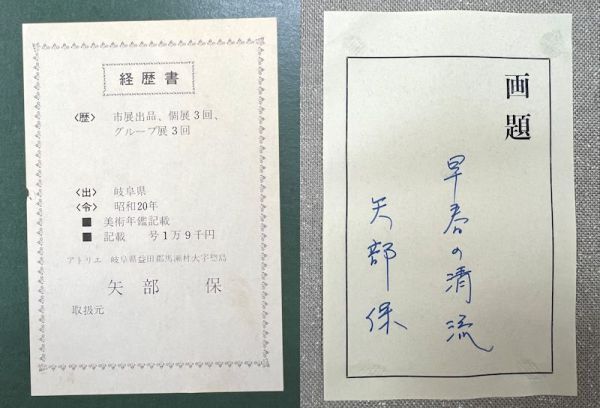 経歴書
〈歴〉 市展出品、個展3回、
グループ展3回
〈出〉 岐阜県
〈令〉 昭和20年
■ 美術年鑑記載
■ 記載 号1万9千円
アトリエ 岐阜県益田郡馬瀬村大字惣島
矢部 保
取扱元
画題
早春の清流
矢部保